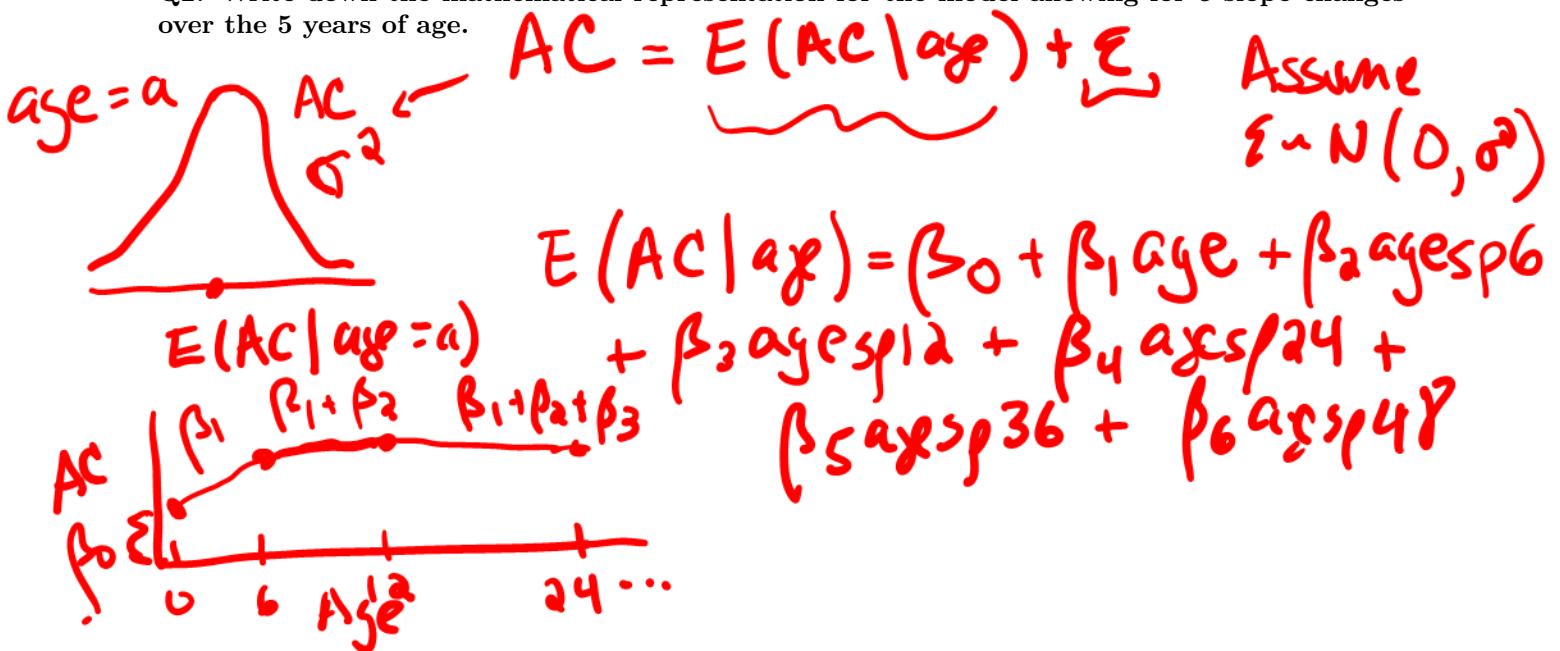 over the 5 years of age.
AC = E(AC|age) + ε
Assume
ε ~ N(0, σ²)
age = a
AC
σ²
E(AC|age=a)
E(AC|age) = β₀ + β₁age + β₂agesp6
+ β₃agesp12 + β₄agesp24 +
β₅agesp36 + β₆agesp48
β₁ β₁+β₂ β₁+β₂+β₃
AC
β₀ {
0 6 12 24 ...
Age